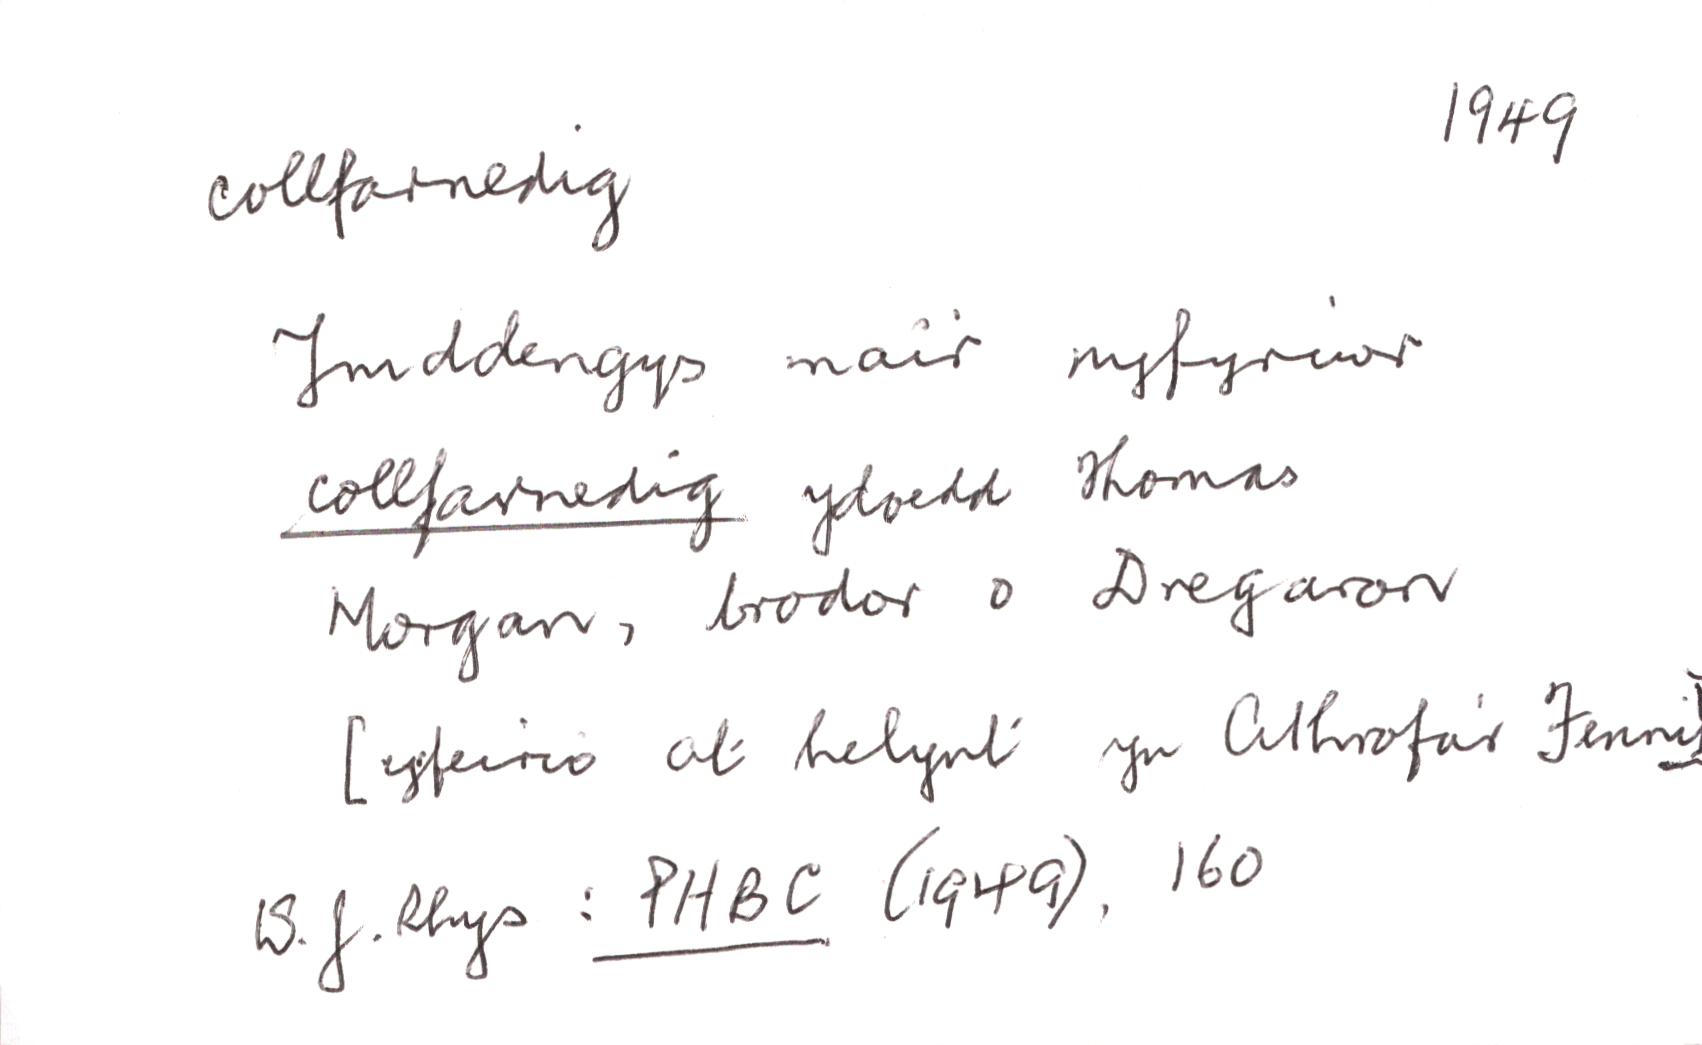 1949
collfarnedig
Ymddengys mai'r myfyriwr
collfarnedig ydoedd Thomas
Morgan, brodor o Dregaron
[cyfeirio at helynt yn Athrofa'r Fenni]
W. J. Rhys : PHBC (1949), 160